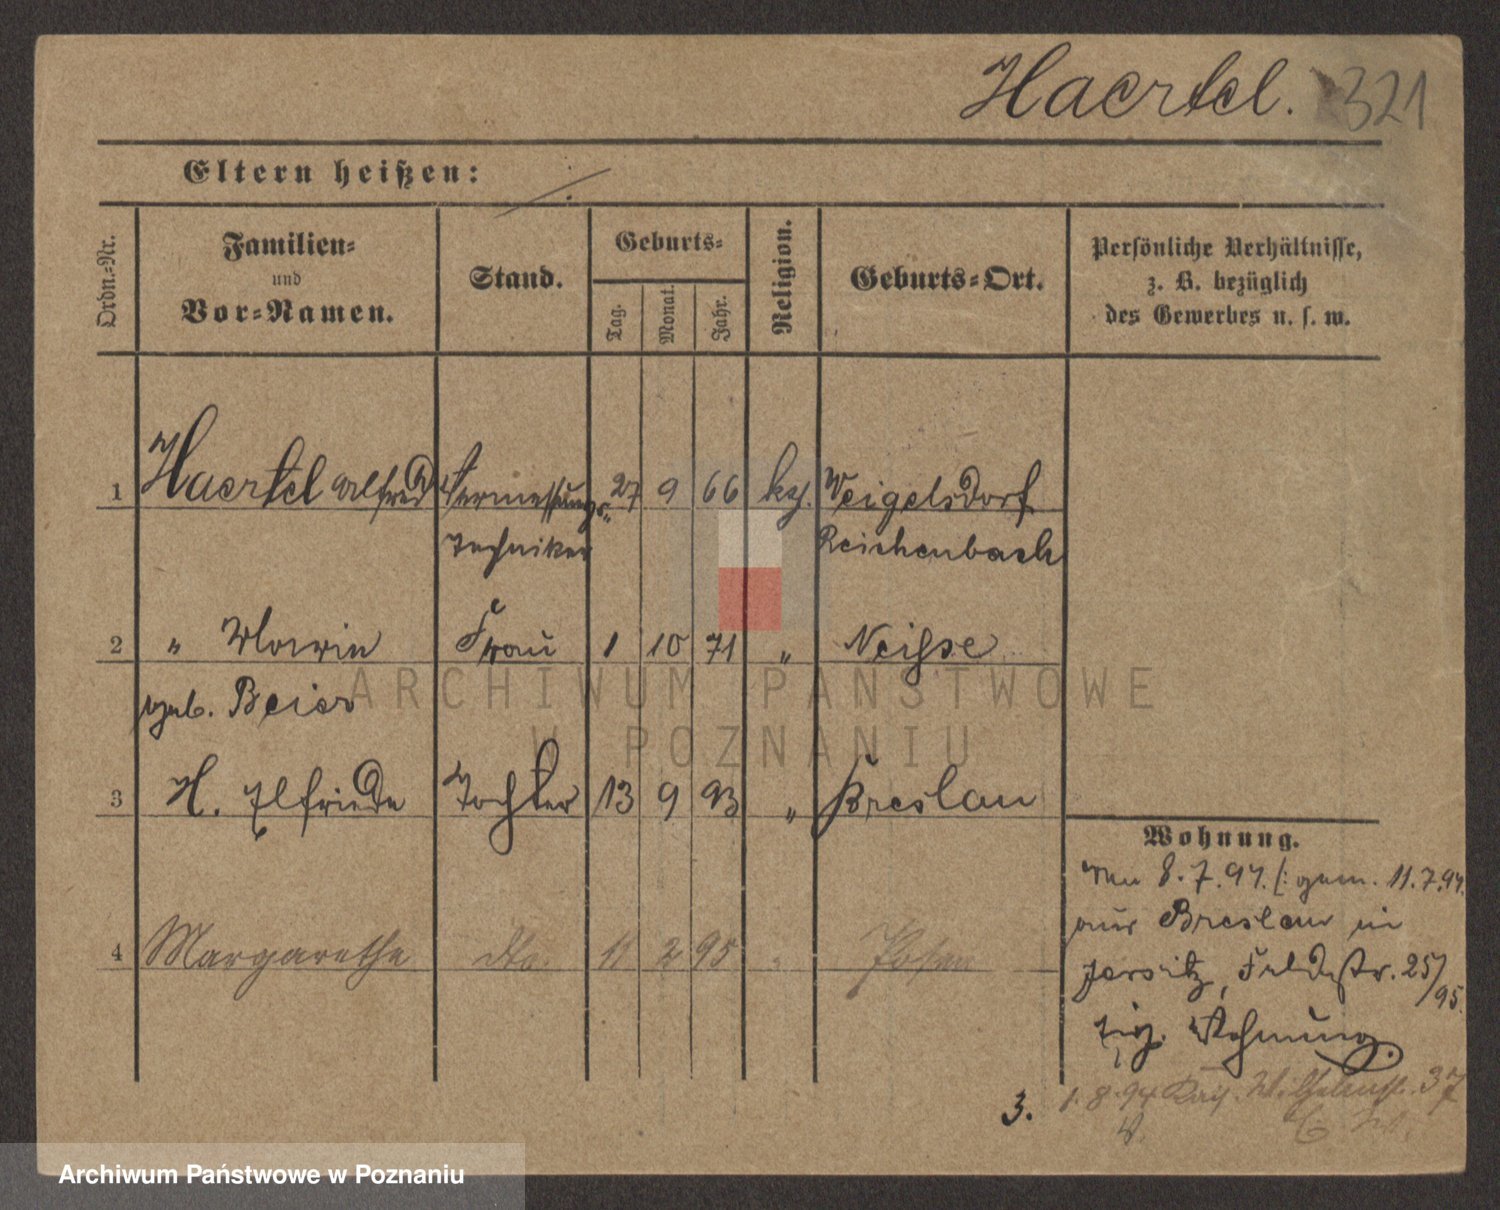 Haertel. 321
Eltern heißen: ./.
Ordn.=Nr.
Familien=
und
Vor=Namen.
Stand.
Geburts=
Tag.
Monat.
Jahr.
Religion.
Geburts=Ort.
Persönliche Verhältnisse,
z. B. bezüglich
des Gewerbes u. s. w.
1 Haertel Alfred Vermessungs- 27 9 66 kg. Weigelsdorf
Techniker Reichenbach
2 " Marie Frau 1 10 71 " Neisse
geb. Beier
3 H. Elfriede Tochter 13 9 93 " Breslau
4 Margarethe dto. 11 2 95 " Posen
Wohnung.
8.7.94. /: gem. 11.7.94.
aus Breslau in
Jersitz, Feldstr. 25/
95.
eig. Wohnung.
3. 1.8.94 Kais. Wilhelmstr. 37
ARCHIWUM PAŃSTWOWE
W POZNANIU
Archiwum Państwowe w Poznaniu